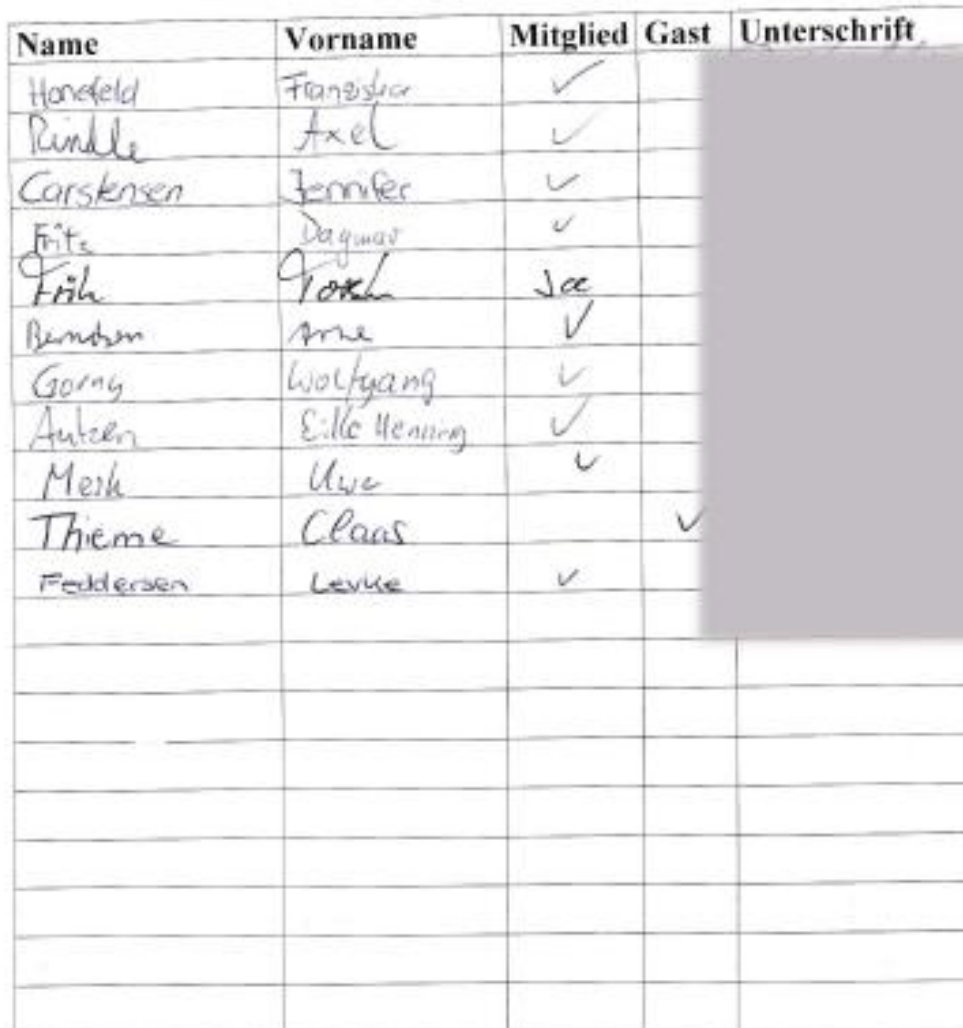 Name Vorname Mitglied Gast Unterschrift
Honefeld Franziska ✓
Rindle Axel ✓
Carstensen Jennifer ✓
Fritz Dagmar ✓
Ja
Berndsen Arne ✓
Gorny Wolfgang ✓
Autzen Eike Henning ✓
Merk Uwe ✓
Thieme Claas ✓
Feddersen Levke ✓